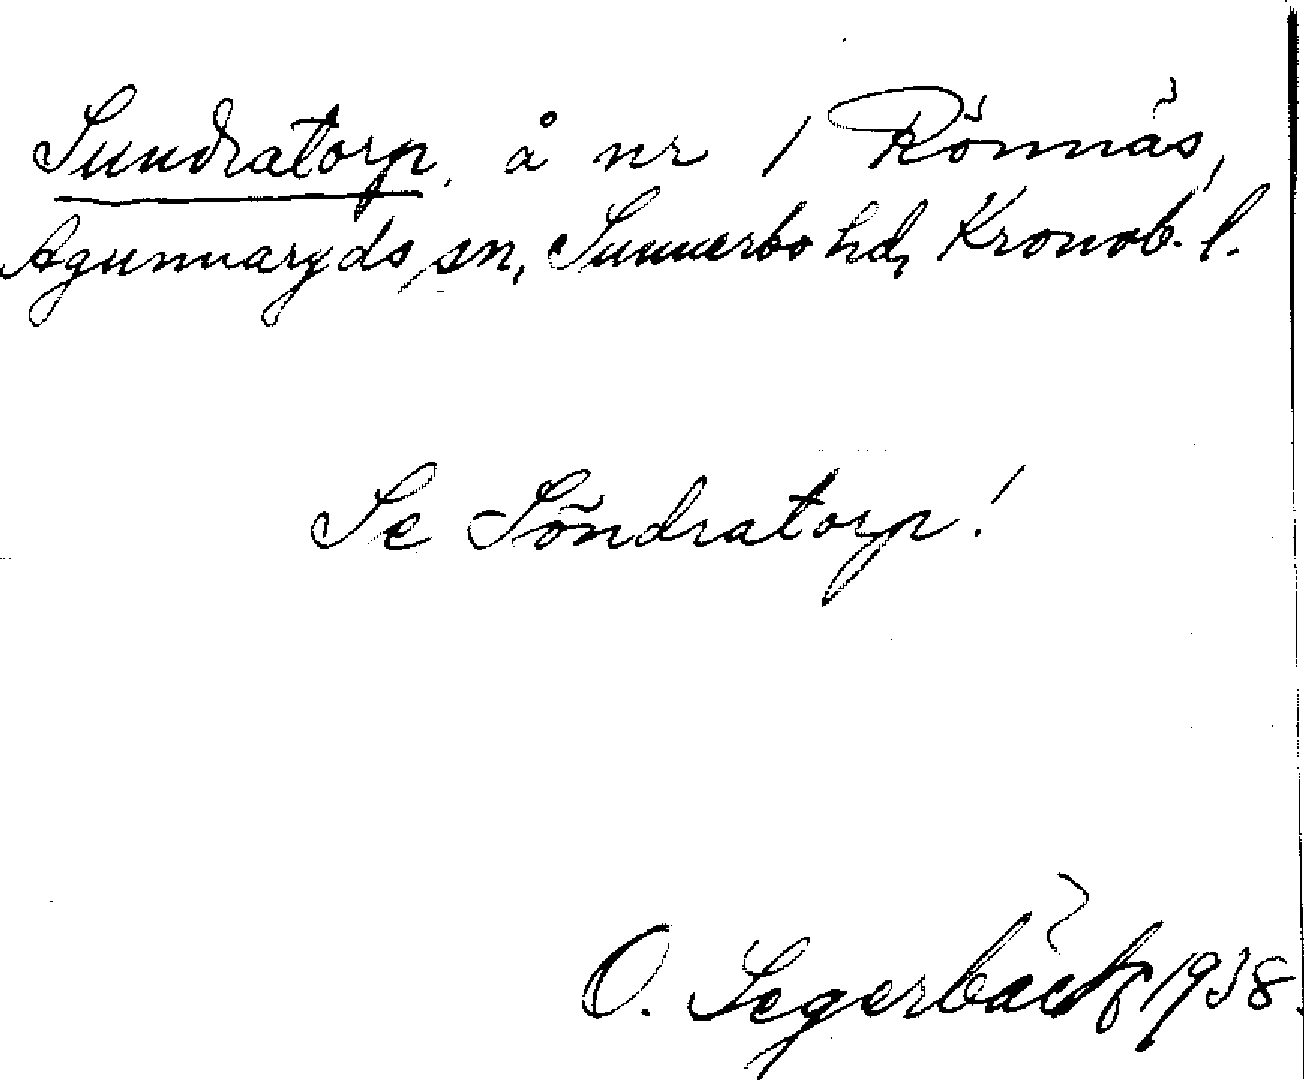 Sundratorp, å nr 1 Rönnäs,
Agunnaryds sn, Sunnerbo hd, Kronob. l.
Se Söndratorp!
O. Segerbäck 1938.